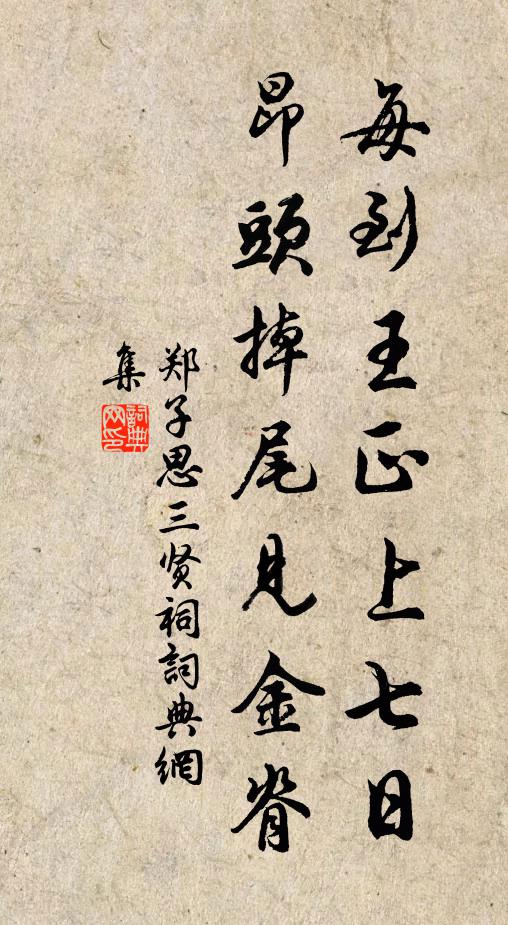 每到王正上七日
昂頭掉尾見金脊
郑子思三贤祠詞典網
集
詞典网印